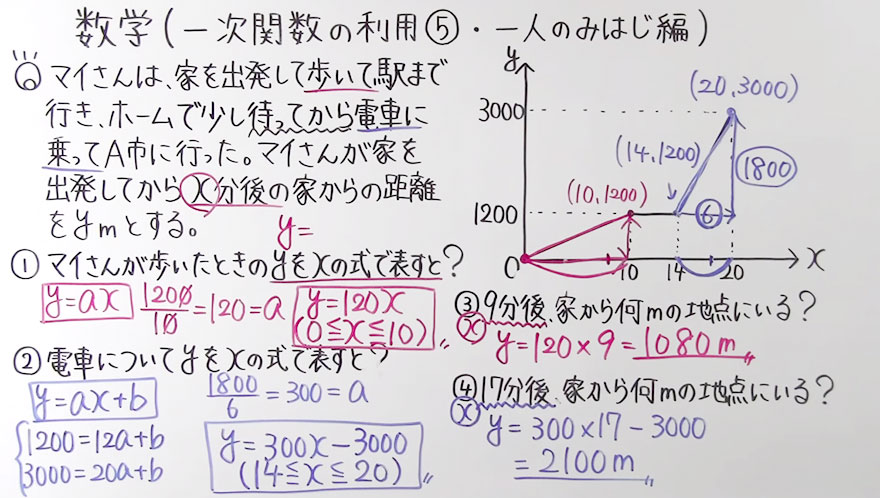 数学(一次関数の利用⑤・一人のみはじ編)
マイさんは、家を出発して歩いて駅まで
行き、ホームで少し待ってから電車に
乗ってA市に行った。マイさんが家を
出発してからx分後の家からの距離
をymとする。
y=
①マイさんが歩いたときのyをxの式で表すと?
y=ax
1200/10=120=a
y=120x
(0≦x≦10)
②電車についてyをxの式で表すと?
y=ax+b
1800/6=300=a
1200=12a+b
3000=20a+b
y=300x-3000
(14≦x≦20)
y
3000
1200
O
10
14
20
x
(20,3000)
(14,1200)
(10,1200)
1800
6
③9分後、家から何mの地点にいる?
x
y=120×9=1080m
④17分後、家から何mの地点にいる?
x
y=300×17-3000
=2100m